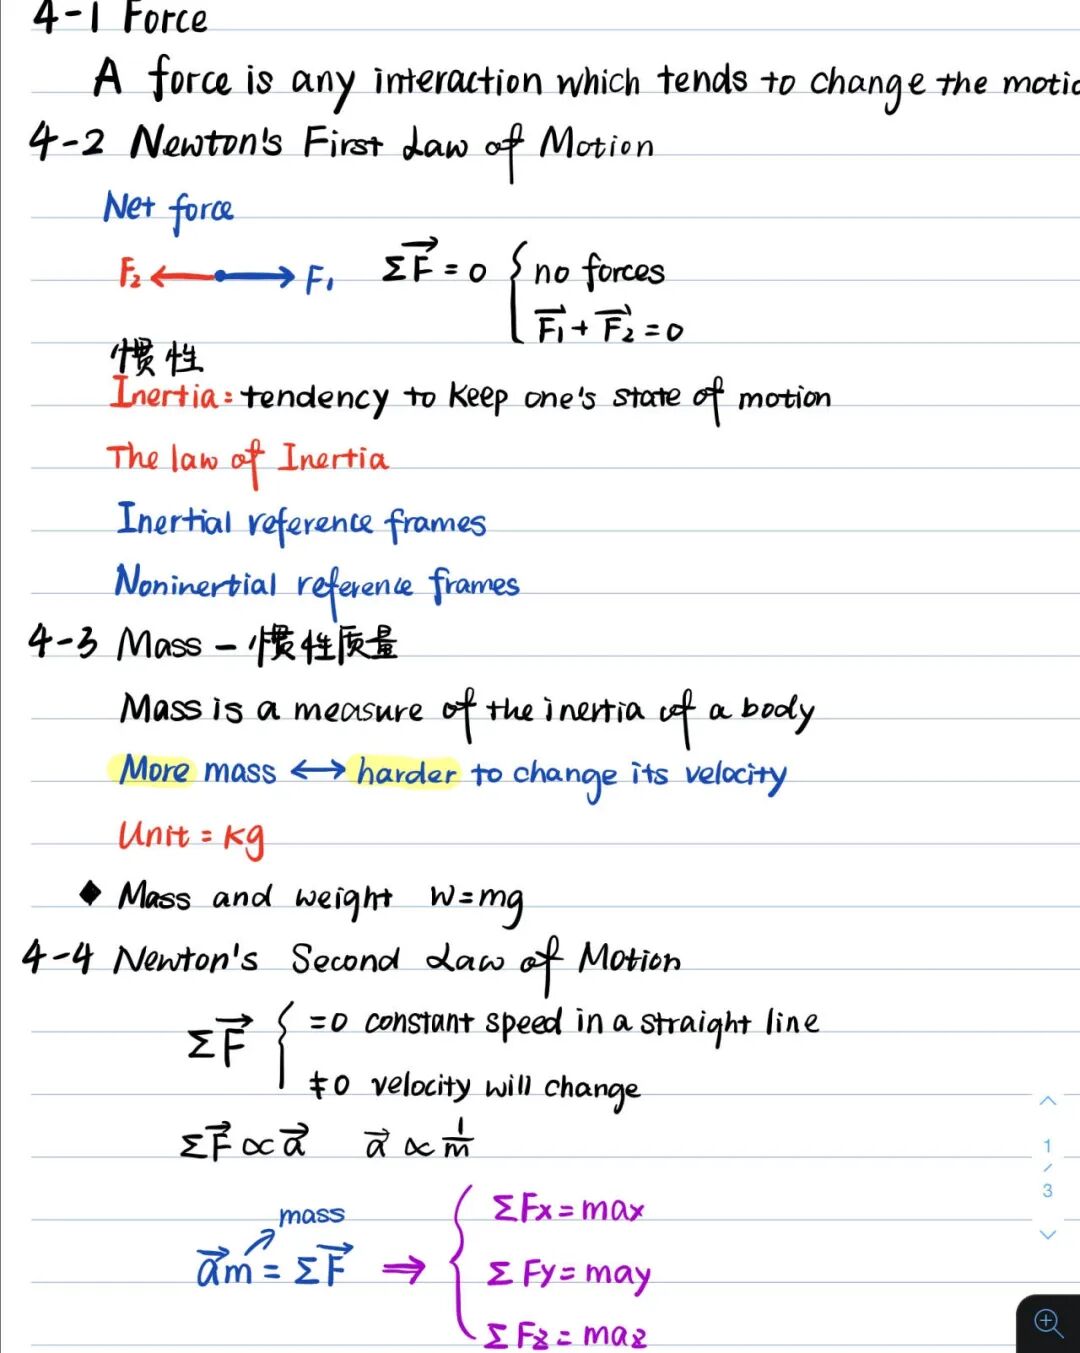 4-1 Force
A force is any interaction which tends to change the motio
4-2 Newton's First Law of Motion
Net force
F₂ F₁ ΣF⃗ = 0 { no forces
F⃗₁ + F⃗₂ = 0
惯性
Inertia: tendency to keep one's state of motion
The law of Inertia
Inertial reference frames
Noninertial reference frames
4-3 Mass - 惯性质量
Mass is a measure of the inertia of a body
More mass ↔ harder to change its velocity
Unit = kg
◆ Mass and weight W=mg
4-4 Newton's Second Law of Motion
ΣF⃗ { =0 constant speed in a straight line
≠0 velocity will change
ΣF⃗ ∝ a⃗ a⃗ ∝ 1/m
mass
a⃗m = ΣF⃗ ⇒ { ΣFx = max
ΣFy = may
ΣFz = maz
1
/
3